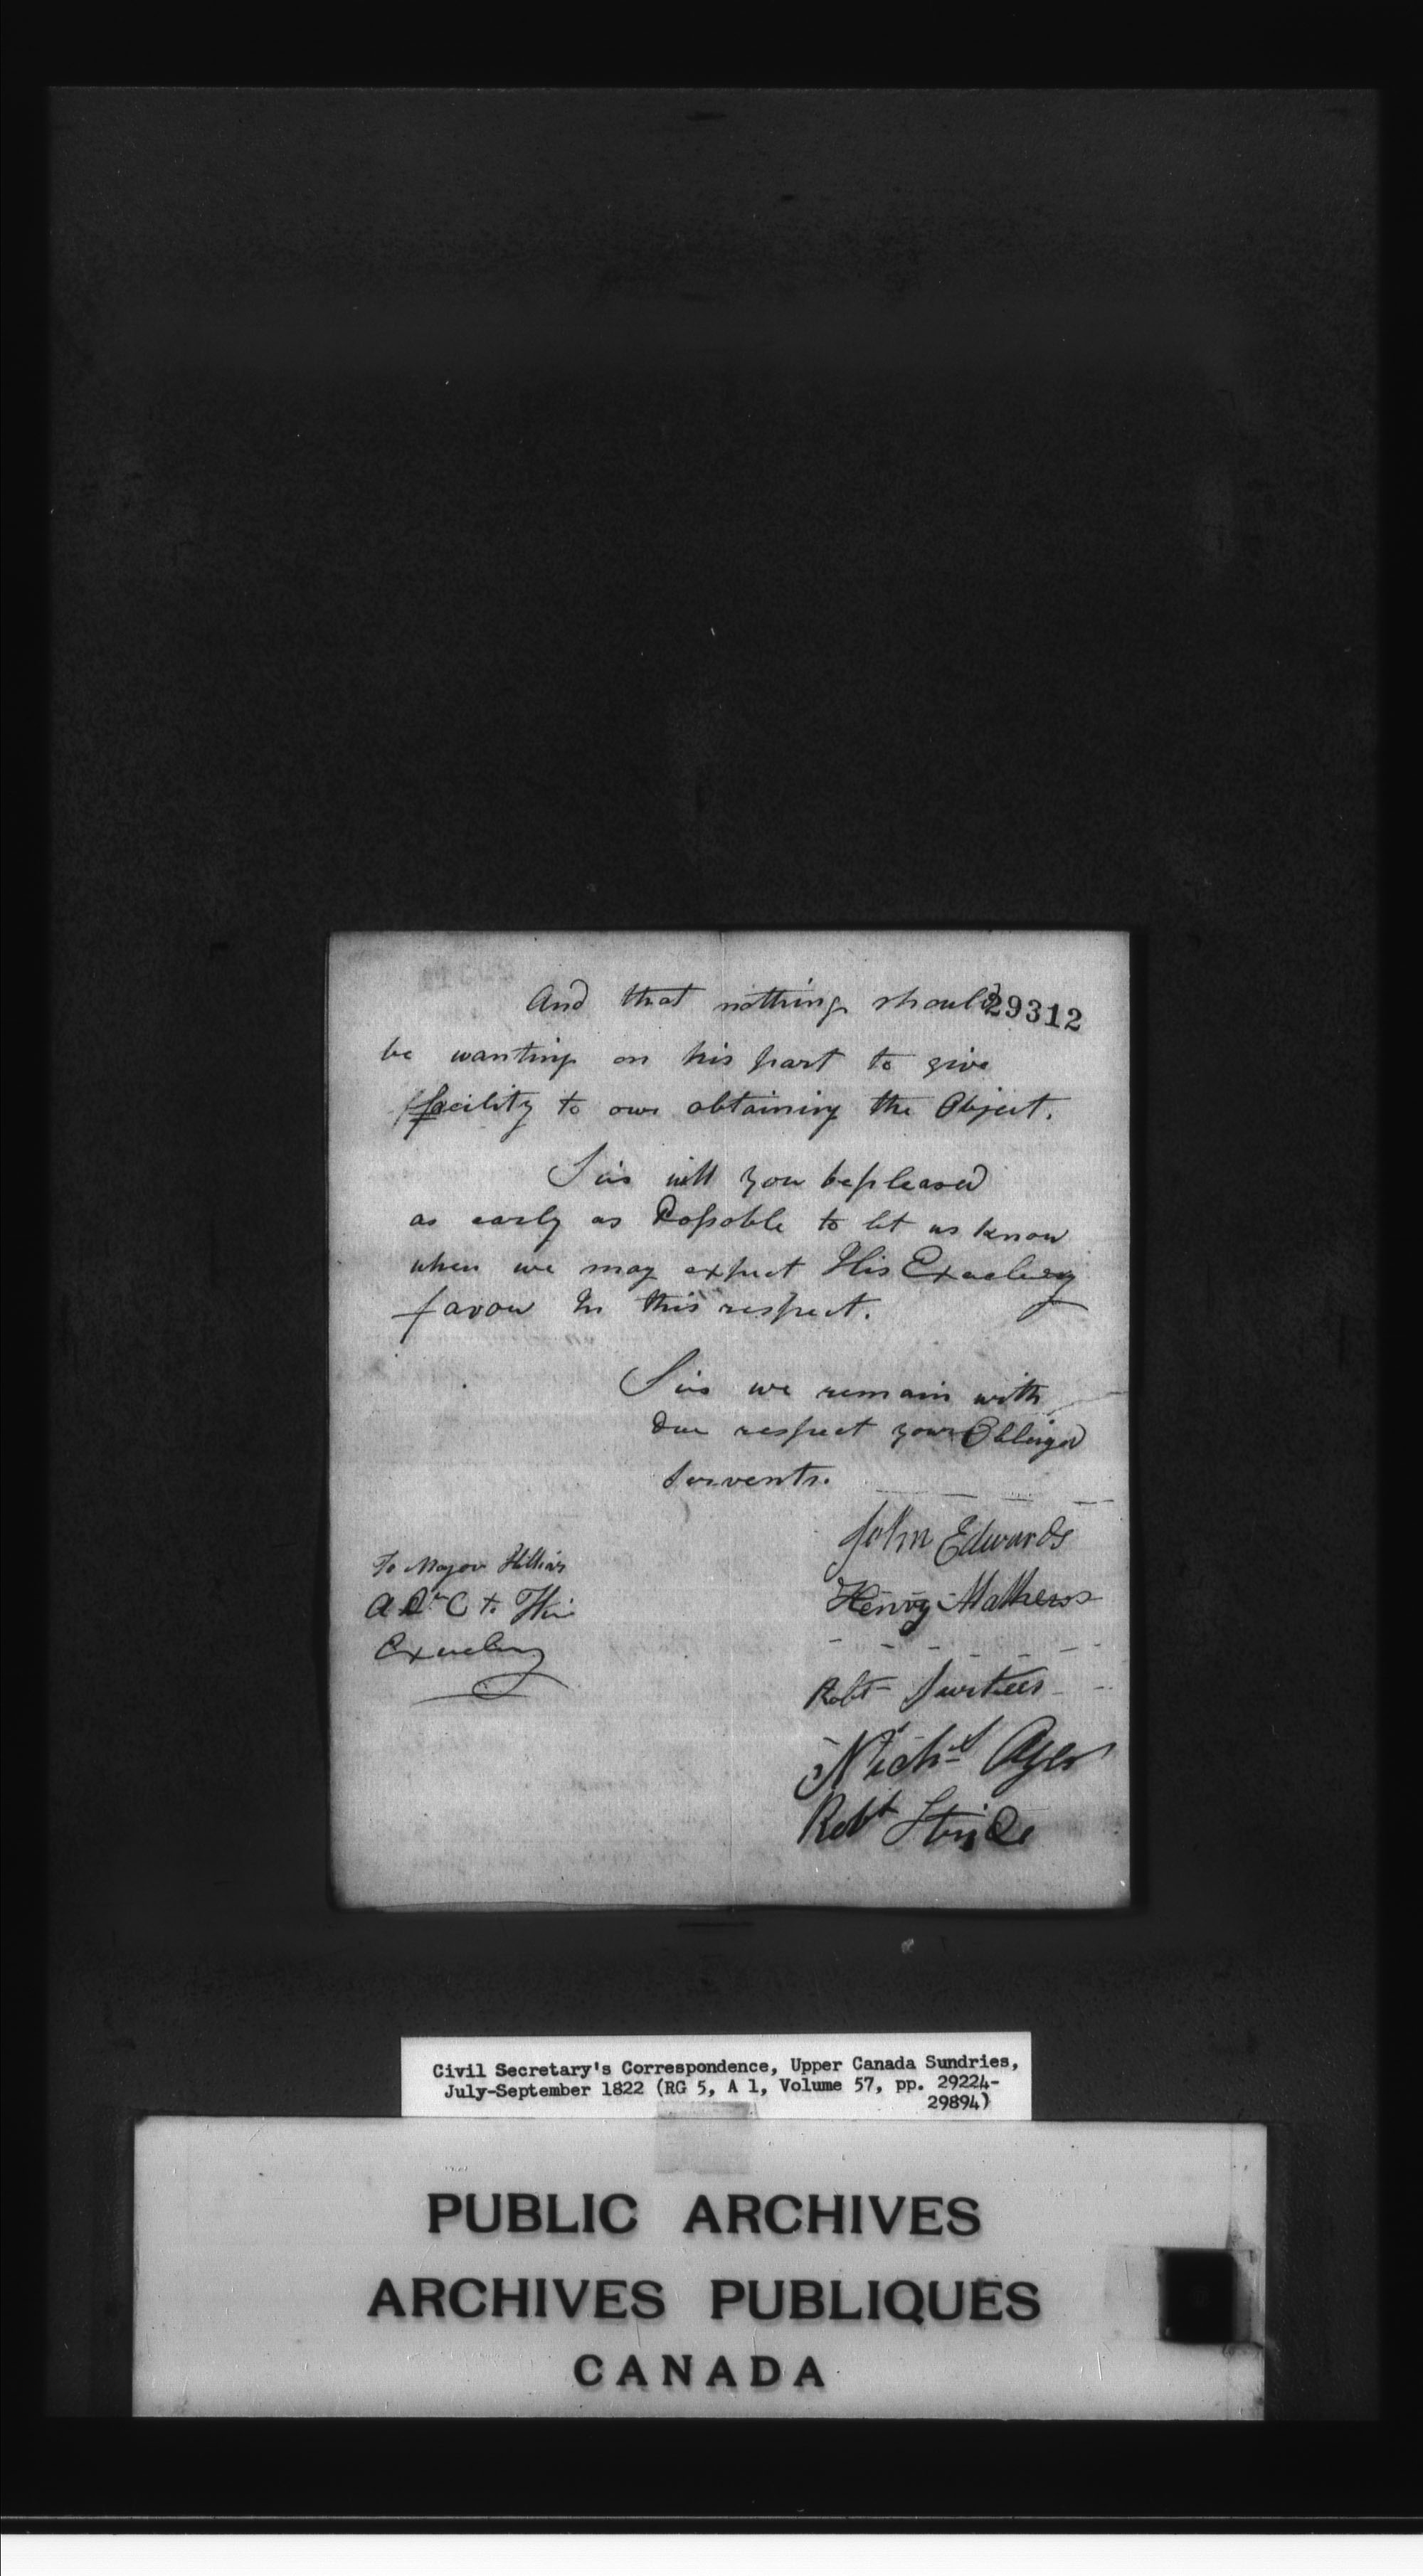 And that nothing should
29312
be wanting on his part to give
facility to our obtaining the Object.
Sir will you be pleased
as early as Possable to let us know
when we may expect His Exaelency
favour In this respect.
Sir we remain with
due respect your Obliged
Servents.
John Edwards
Henry Mathews
Robt Surtees
Nichs Ager
Robt Stride
To Major Hillier
A D C to His
Exaelency
Civil Secretary's Correspondence, Upper Canada Sundries,
July-September 1822 (RG 5, A 1, Volume 57, pp. 29224-
29894)
PUBLIC ARCHIVES
ARCHIVES PUBLIQUES
CANADA